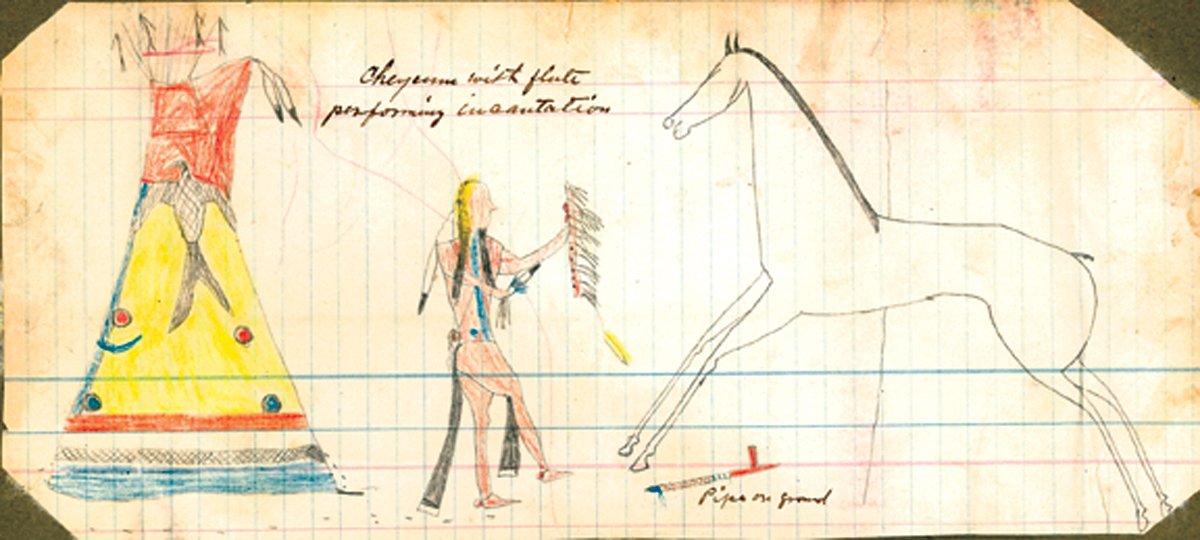 Cheyenne with flute
performing incantation
Pipe on ground